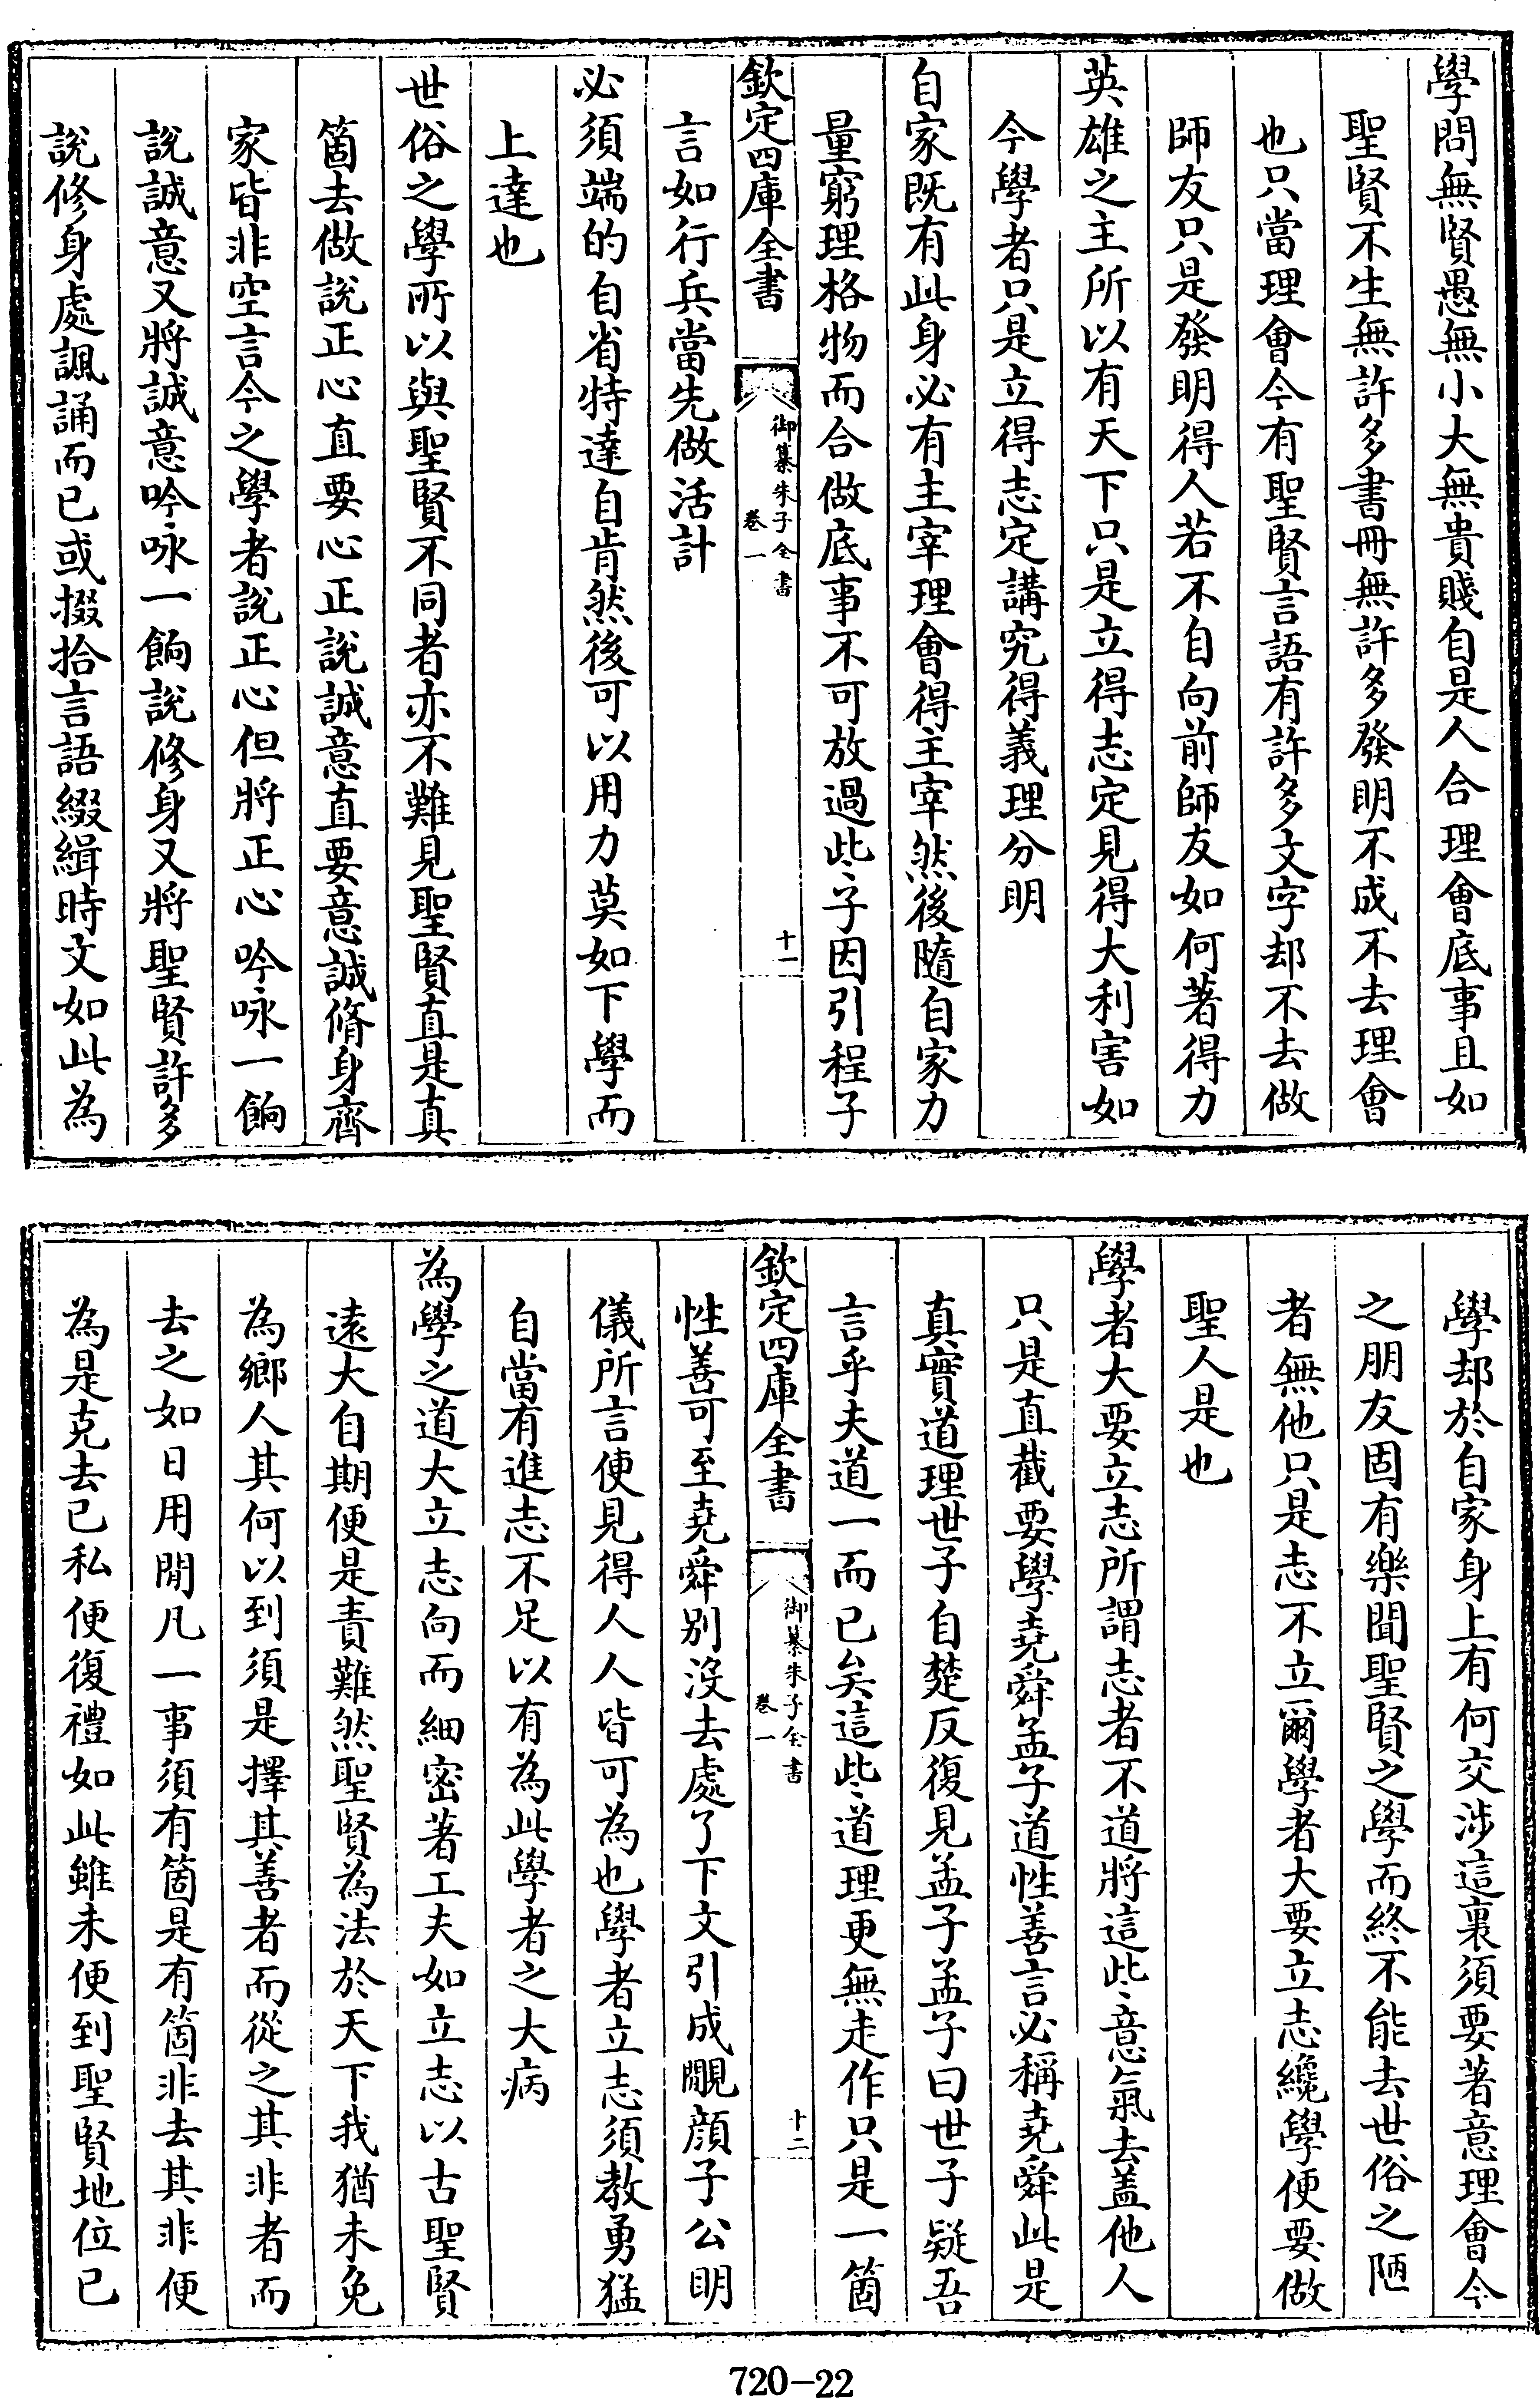 學問無賢愚無小大無貴賤自是人合理會底事且如
聖賢不生無許多書冊無許多發明不成不去理會
也只當理會今有聖賢言語有許多文字却不去做
師友只是發明得人若不自向前師友如何著得力
英雄之主所以有天下只是立得志定見得大利害如
今學者只是立得志定講究得義理分明
自家既有此身必有主宰理會得主宰然後隨自家力
量窮理格物而合做底事不可放過些子因引程子
欽定四庫全書
御纂朱子全書
卷一
十一
言如行兵當先做活計
必須端的自省特達自肯然後可以用力莫如下學而
上達也
世俗之學所以與聖賢不同者亦不難見聖賢直是真
箇去做說正心直要心正說誠意直要意誠脩身齊
家皆非空言今之學者說正心但將正心吟咏一餉
說誠意又將誠意吟咏一餉說修身又將聖賢許多
說修身處諷誦而已或掇拾言語綴緝時文如此為
學却於自家身上有何交涉這裏須要著意理會今
之朋友固有樂聞聖賢之學而終不能去世俗之陋
者無他只是志不立爾學者大要立志纔學便要做
聖人是也
學者大要立志所謂志者不道將這些意氣去蓋他人
只是直截要學堯舜孟子道性善言必稱堯舜此是
真實道理世子自楚反復見孟子孟子曰世子疑吾
言乎夫道一而已矣這些道理更無走作只是一箇
欽定四庫全書
御纂朱子全書
卷一
十二
性善可至堯舜別沒去處了下文引成覸顔子公明
儀所言便見得人人皆可為也學者立志須教勇猛
自當有進志不足以有為此學者之大病
為學之道大立志向而細密著工夫如立志以古聖賢
遠大自期便是責難然聖賢為法於天下我猶未免
為鄉人其何以到須是擇其善者而從之其非者而
去之如日用間凡一事須有箇是有箇非去其非便
為是克去已私便復禮如此雖未便到聖賢地位已
720-22